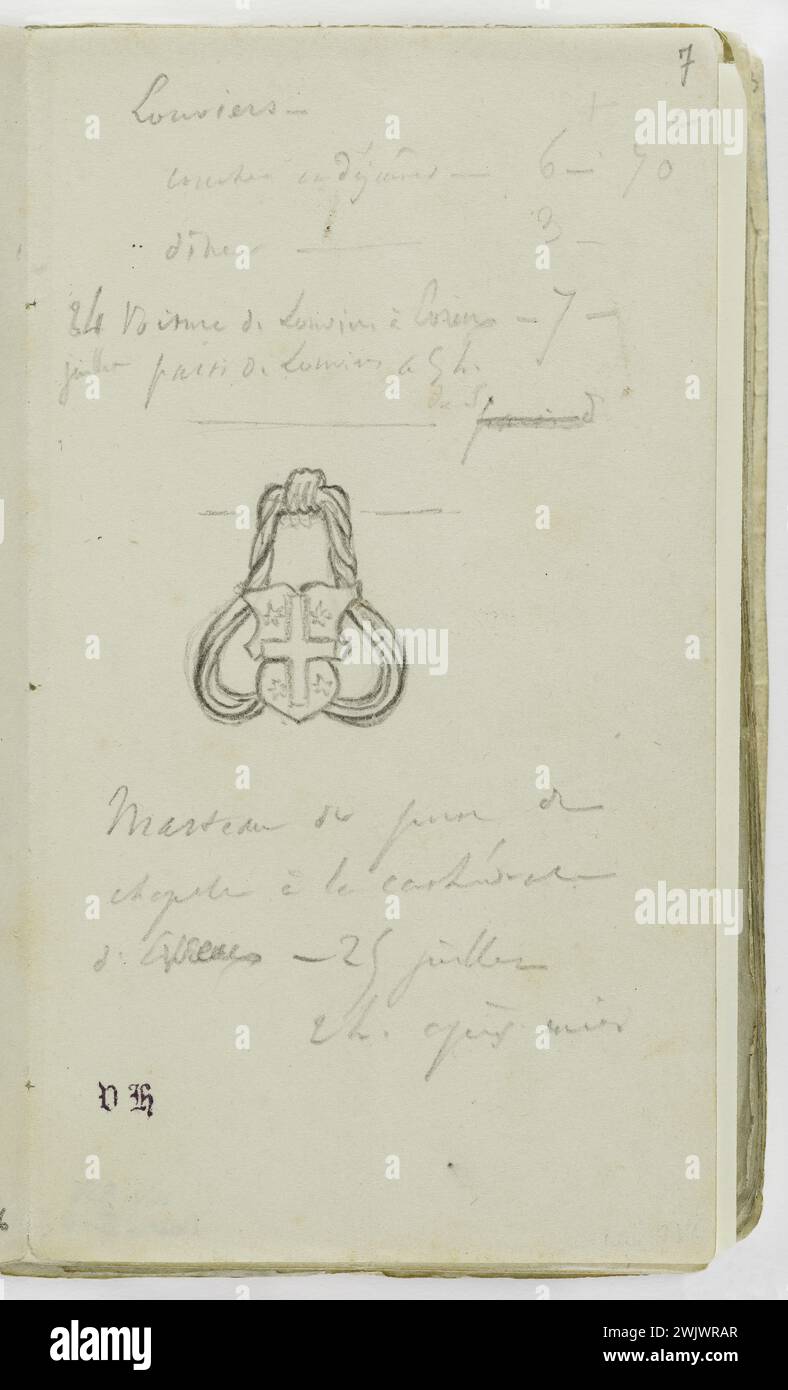 7
Louviers —
coucher et déjeûner — 6 — 70
dîner — 3 —
24 Voiture de Louviers à Evreux — 7 —
juillet parti de Louviers à 5 h.
Marteau de porte de
chapelle à la cathédrale
d'Evreux — 25 juillet
2 h. après midi
V H
alamy
Image ID: 2WJWRAR
www.alamy.com